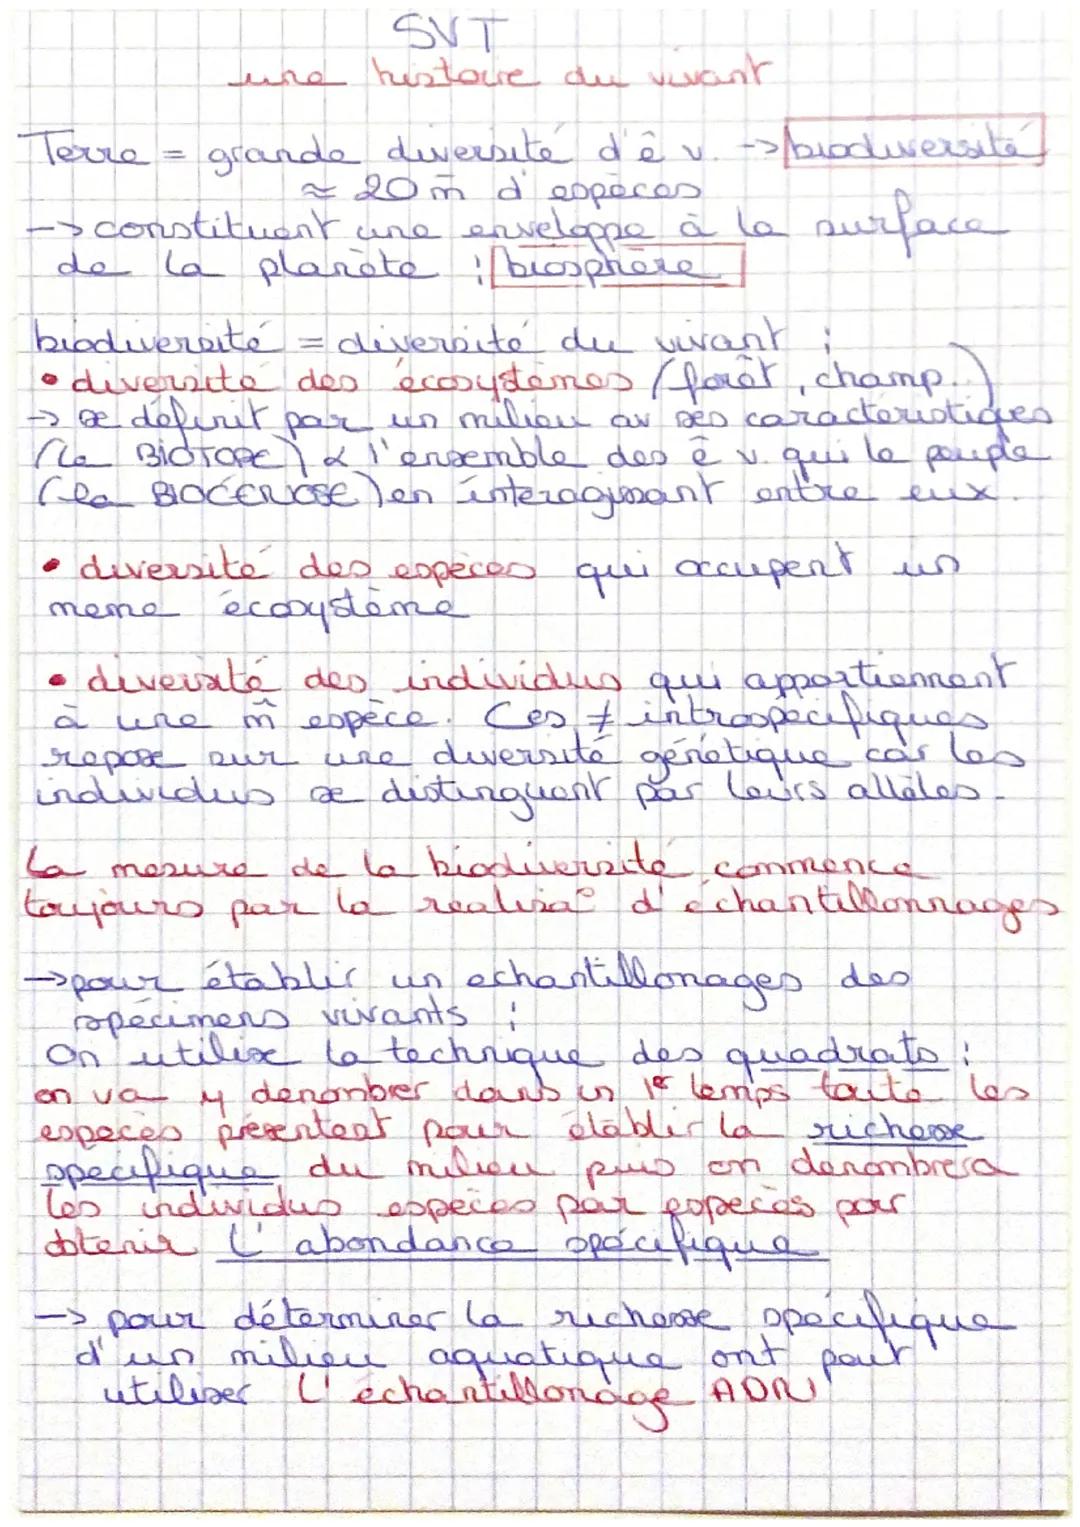 SVT
une histoire du vivant
Terre = grande diversité d'ê v. -> biodiversité
≈ 20 m d'espèces
-> constituent une enveloppe à la surface
de la planète : biosphère
biodiversité = diversité du vivant :
• diversité des écosystèmes (forêt, champ..)
-> se définit par un milieu av ses caractéristiques
(le BIOTOPE) & l'ensemble des ê v. qui le peuple
(la BIOCÉNOSE) en interagissant entre eux.
• diversité des espèces qui occupent un
meme écosystème
• diversité des individus qui appartiennent
à une m̂ espèce. Ces ≠ intraspécifiques
repose sur une diversité génétique car les
individus se distinguent par leurs allèles.
La mesure de la biodiversité commence
toujours par la realisa° d'échantillonnages
-> pour établir un echantillonages des
spécimens vivants :
On utilise la technique des quadrats :
on va y denombrer dans un 1er temps toute les
espèces présentent pour établir la richesse
spécifique du milieu puis on denombrera
les individus espèces par espèces pour
obtenir L'abondance spécifique
-> pour déterminer la richesse spécifique
d'un milieu aquatique ont peut
utiliser L'échantillonage ADN